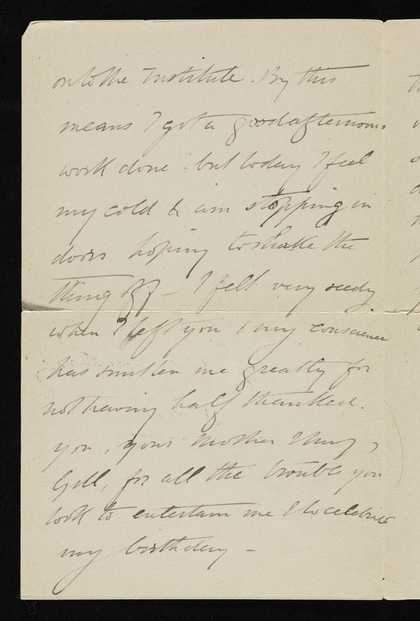 on to the Institute. By this
means I got a good afternoons
work done - but today I feel
my cold & am stopping in
doors hoping to shake the
thing off - I felt very seedy
when I left you & my conscience
has smitten me greatly for
not having half thanked
you, your mother &
Gill, for all the trouble you
took to entertain me & to celebrate
my birthday -